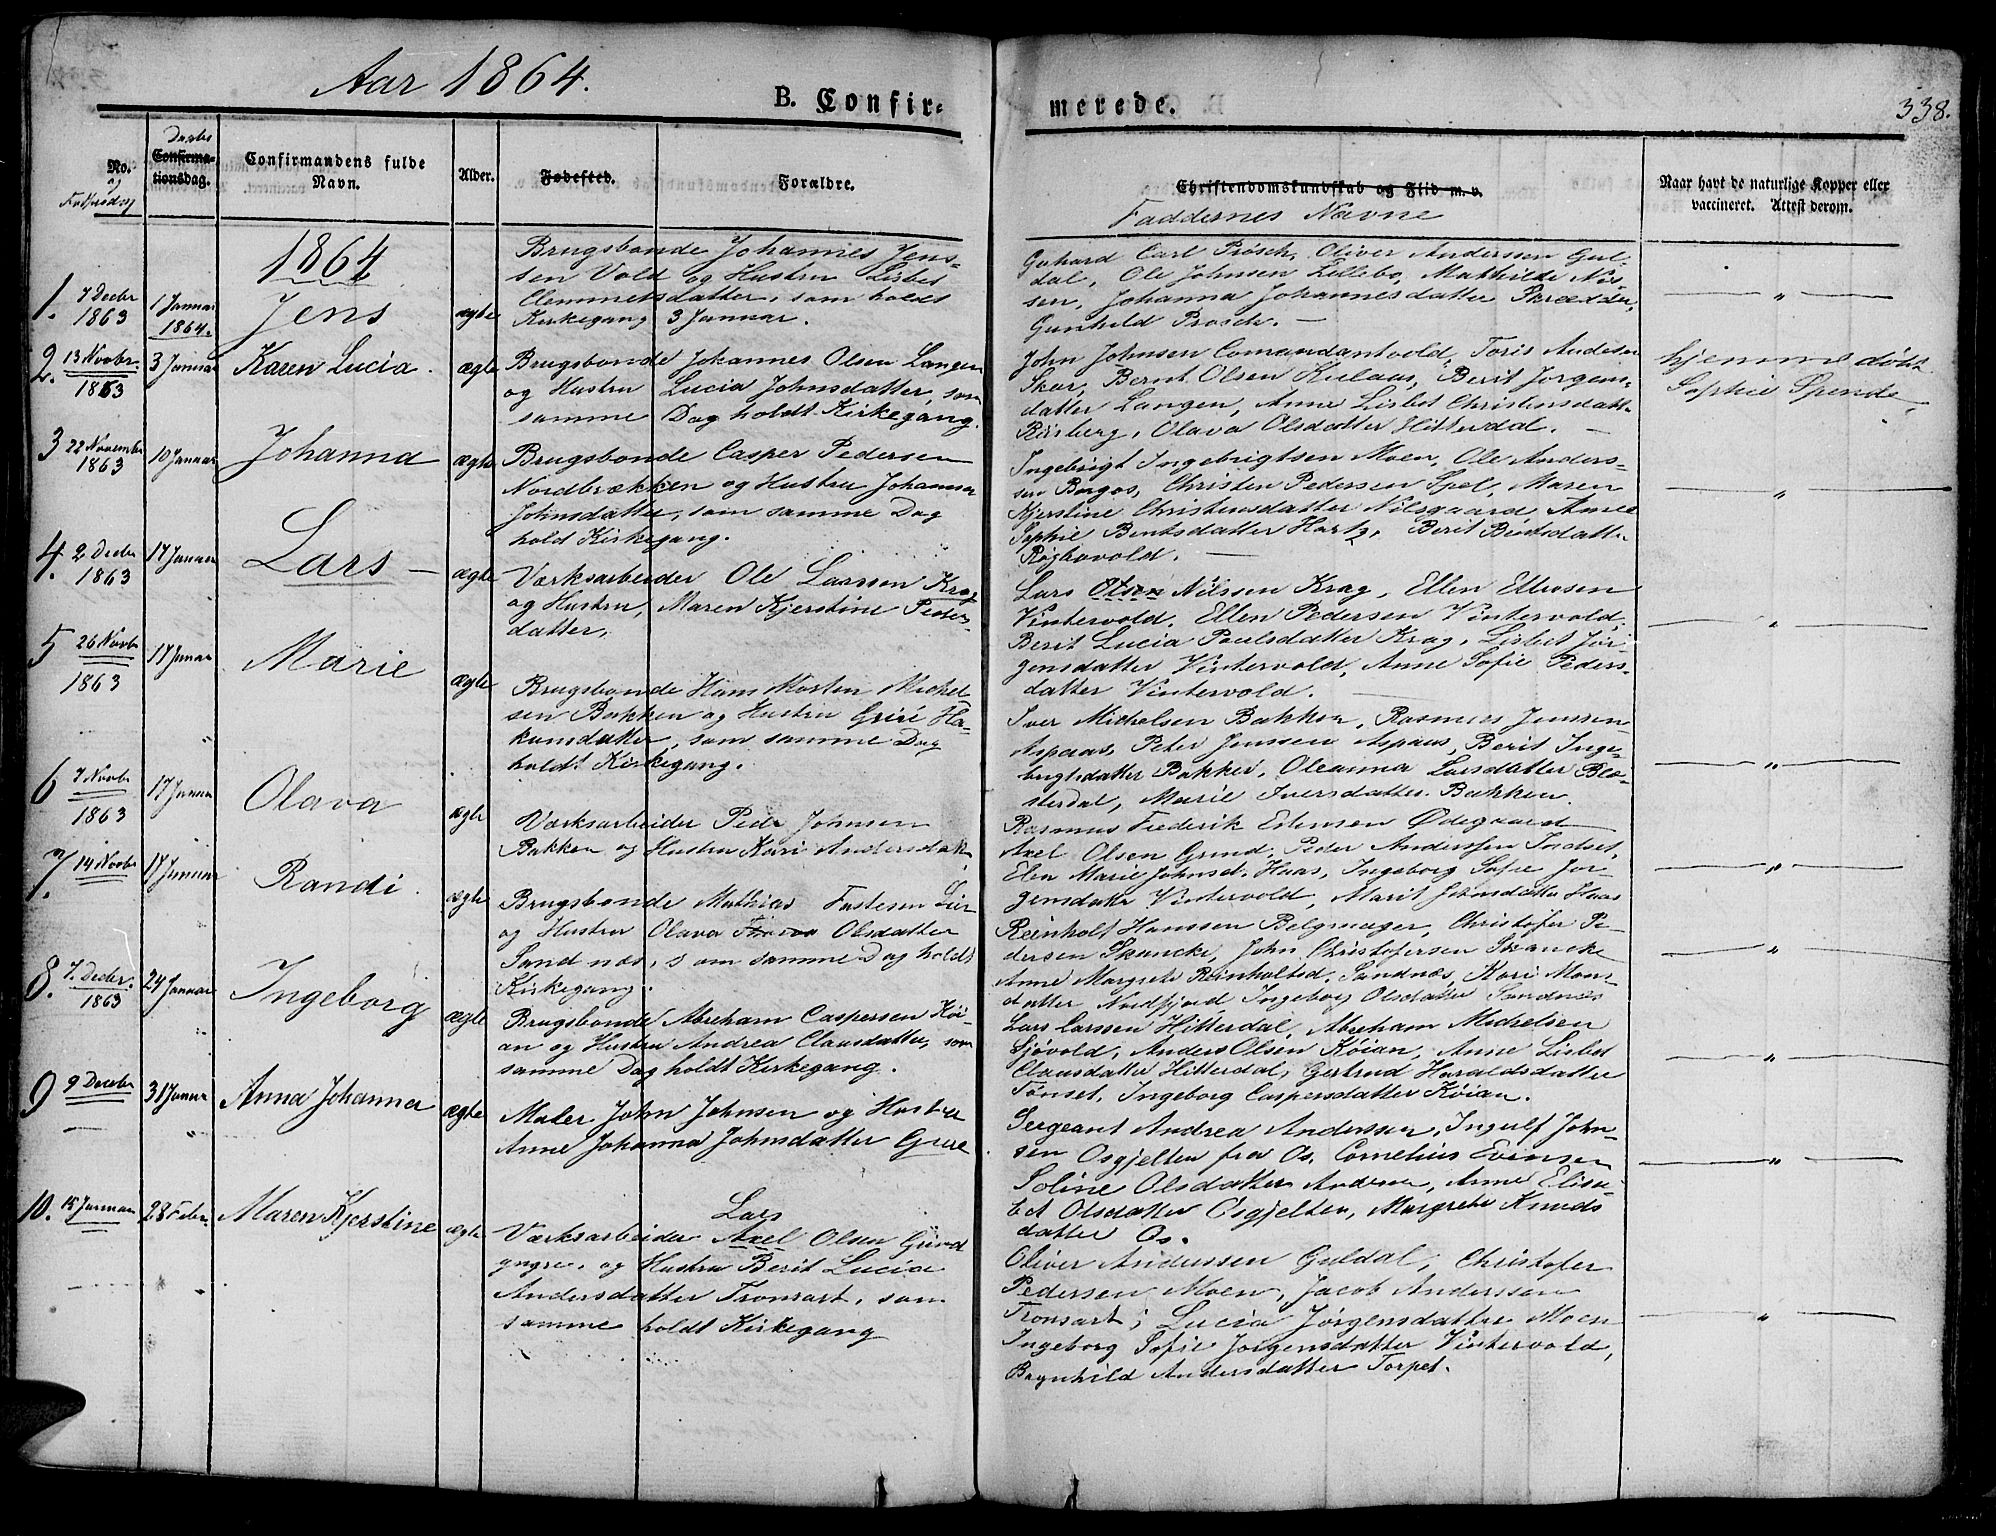 Aar 1864.
B. Confir-
merede.
338.
No. og Fødselsdag
Daabs
Confirma-
tionsdag.
Confirmandens fulde
Navn.
Alder.
Fødested.
Forældre.
Christendomskundskab og Flid m. v.
Faddernes Navne
Naar havt de naturlige Kopper eller
vaccineret. Attest derom.
1864
1. 7 Decbr 1863
1 Januar 1864.
Jens
ægte
Brugsbonde Johannes Jens-
sen Vold og Hustru Lisbet
Clemmetsdatter, som holdt
Kirkegang 3 Januar.
Carl Prösch, Oliver Anderssen Gul-
dal, Ole Johnsen Lillebo, Mathilde Nis-
sen, Johanna Johannesdatter
Gunhild Prösch. —
— " —
2. 13 Novbr 1863
3 Januar
Karen Lucia.
ægte
Brugsbonde Johannes Olsen Langen
og Hustru Lucia Johnsdatter, som
samme Dag holdt Kirkegang.
John Johnsen Comandantvold, Toris Andersn
Skar, Bernt Olsen Kulaas, Berit Jørgens-
datter Langen, Anne Lisbet Christensdatt.
Røsberg, Olava Olsdatter Hitterdal. —
hjemmedøbt
Sophie Spende
3 22 November 1863
10 Januar
Johanna
ægte
Brugsbonde Casper Pedersen
Nordbrækken og Hustru Johanna
Johnsdatter, som samme Dag
hold Kirkegang.
Ingebrigt Ingebrigtsen Moen, Ole Anders-
sen Borgos, Christen Pedersen Spel, Maren
Kjerstine Christensdatter Nilsgaard, Anne
Sophie Bentsdatter Hartz, Berit Bentsdatter
— " —
4. 2 Decbr 1863
17 Januar
Lars —
ægte
Værksarbeider Ole Larssen Krag
og Hustru, Maren Kjerstine Peders-
datter.
Lars Olsen Nilssen Krag, Ellen Ellevsen
Vintervold, Ellen Pedersen Vintervold,
Berit Lucia Paulsdatter Krag, Lisbet Jør-
gensdatter Vintervold, Anne Sofie Peders-
datter Vintervold. —
— " —
5 26 Novbr 1863
17 Januar
Marie
ægte
Brugsbonde Hans Morten Mickel-
sen Bakken og Hustru Guri Ha-
kansdatter, som samme Dag
holdt Kirkegang.
Iver Michelsen Bakken, Rasmus Jenssen
Aspaas, Peter Jenssen Aspaas, Berit Inge-
brigtsdatter Bakken, Oleanna Larsdatter Blæ-
sterdal, Marie Iversdatter Bakken.
— " —
6 7 Novbr 1863
17 Januar
Olava
ægte
Værksarbeider Peder Johnsen
Bakken og Hustru Kari Andersdatt.
Rasmus Frederik Estensen Ødegaard
Axel Olsen Grind, Peder Anderssen Indset,
Elen Marie Johnsd. Haas, Ingeborg Sofie Jør-
gensdatter Vintervold, Marit Johnsdatter Haas
— " —
7. 14 Novbr
17 Januar
Randi.
ægte
Brugsbonde Mathias Fastesen Lien
og Hustru Olava Olsdatter
Sandnæs, som samme Dag holdt
Kirkegang.
Reinholt Hanssen Belgmager, Christofer Pe-
dersen Skancke, John Christofersen Skancke
Anne Margrete Reinholtsd. Sandnæs, Kari Mons-
datter Nordfjord, Ingeborg Olsdatter Sandnæs
— " —
8. 7. Decbr. 1863
24 Januar
Ingeborg
ægte
Brugsbonde Abraham Caspersen Køi-
an og Hustru Andrea Clausdatter, som
samme Dag holdt Kirkegang.
Lars Larssen Hitterdal, Abraham Michelsen
Sjøvold, Anders Olsen Køian, Anne Lisbet
Clausdatter Hitterdal, Gertrud Haraldsdatter
Tønset, Ingeborg Caspersdatter Køian.
— " —
9 9 Decbr
31 Januar
Anna Johanna
ægte
Maler John Johnsen og Hustru
Anne Johanna Johnsdatter
Sergeant Andrea Anderssen, Ingulf John-
sen Osgjelten fra Os, Cornelius Evensen
Soline Olsdatter Andrea, Anne Elisa-
bet Olsdatter Osgjelten, Margrete Knuds
datter Os.
— " —
10. 15 Januar
28 Febr
Maren Kjerstine
ægte
Lars
Værksarbeider Axel Olsen Grind
gngre, og Hustru Berit Lucia
Andersdatter Tronsart, som
samme holdt Kirkegang
Oliver Anderssen Guldal, Christofer
Pedersen Moen, Jacob Anderssen
Tronsart, Lucia Jørgensdatter Moen
Ingeborg Sofie Jørgensdatter Vintervold,
Brynhild Andersdatter Torpet.
— " —